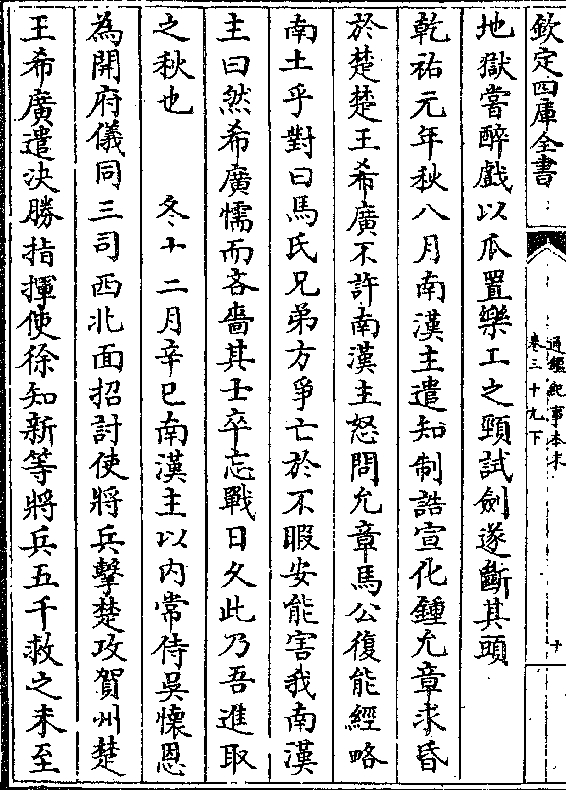 欽定四庫全書
通鑑紀事本末
卷三十九下
十
地獄嘗醉戲以瓜置樂工之頸試劍遂斷其頭
乾祐元年秋八月南漢主遣知制誥宣化鍾允章求昏
於楚楚王希廣不許南漢主怒問允章馬公復能經略
南土乎對曰馬氏兄弟方爭亡於不暇安能害我南漢
主曰然希廣懦而吝嗇其士卒忘戰日久此乃吾進取
之秋也　　冬十二月辛巳南漢主以内常侍吳懷恩
為開府儀同三司西北面招討使將兵擊楚攻賀州楚
王希廣遣決勝指揮使徐知新等將兵五千救之未至